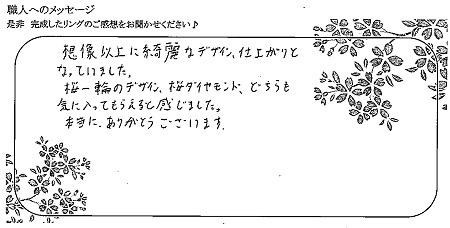 職人へのメッセージ
是非 完成したリングのご感想をお聞かせください♪
想像以上に綺麗なデザイン、仕上がりと
なっていました。
桜一輪のデザイン、桜ダイヤモンド、どちらも
気に入ってもらえると感じました。
本当に、ありがとうございます。